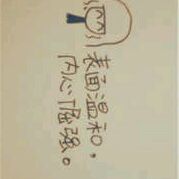 表面温和，
内心倔强。